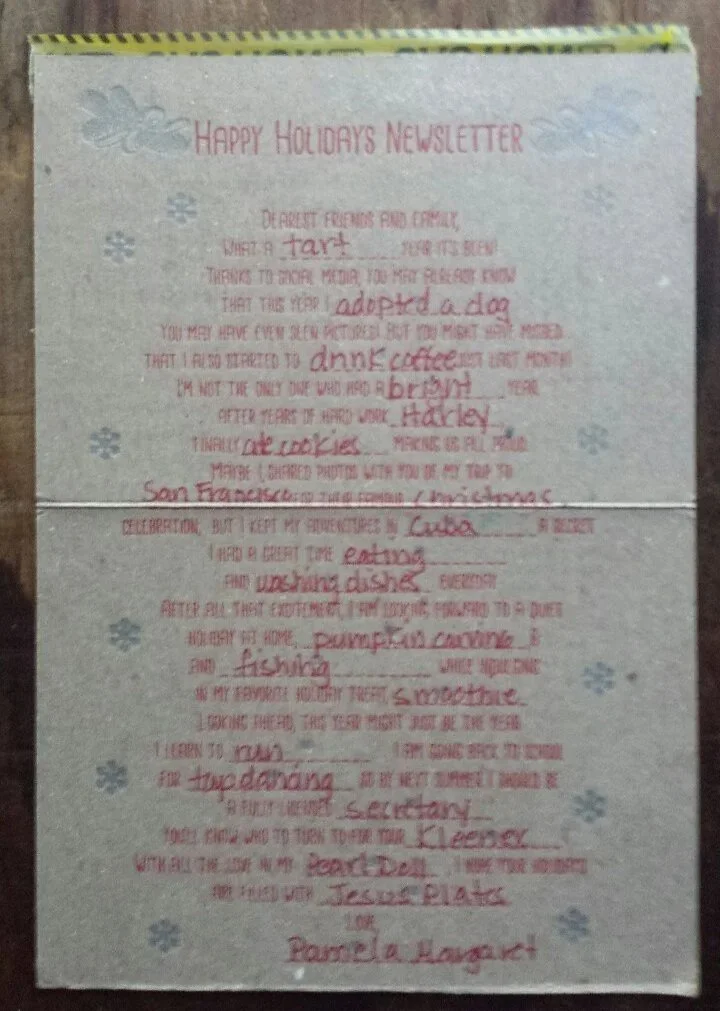 HAPPY HOLIDAYS NEWSLETTER
DEAREST FRIENDS AND FAMILY,
WHAT A tart YEAR IT'S BEEN!
THANKS TO SOCIAL MEDIA, YOU MAY ALREADY KNOW
THAT THIS YEAR I adopted a dog
YOU MAY HAVE EVEN SEEN PICTURES! BUT YOU MIGHT HAVE MISSED
THAT I ALSO STARTED TO drink coffee JUST LAST MONTH!
I'M NOT THE ONLY ONE WHO HAD A bright YEAR
AFTER YEARS OF HARD WORK, Harley
FINALLY ate cookies MAKING US ALL PROUD.
MAYBE I SHARED PHOTOS WITH YOU OF MY TRIP TO
San Francisco FOR THEIR FAMOUS Christmas
CELEBRATION, BUT I KEPT MY ADVENTURES IN Cuba A SECRET
I HAD A GREAT TIME eating
AND washing dishes EVERYDAY
AFTER ALL THAT EXCITEMENT, I AM LOOKING FORWARD TO A QUIET
HOLIDAY AT HOME, pumpkin carving
AND fishing WHILE INDULGING
IN MY FAVORITE HOLIDAY TREAT, smoothie
LOOKING AHEAD, THIS YEAR MIGHT JUST BE THE YEAR
I LEARN TO run I AM GOING BACK TO SCHOOL
FOR tap dancing SO BY NEXT SUMMER I SHOULD BE
A FULLY LICENSED secretary
YOU'LL KNOW WHO TO TURN TO FOR YOUR Kleenex
WITH ALL THE LOVE IN MY Pearl Doll I HOPE YOUR HOLIDAYS
ARE FILLED WITH Jesus Plates
LOVE,
Pamela Margaret